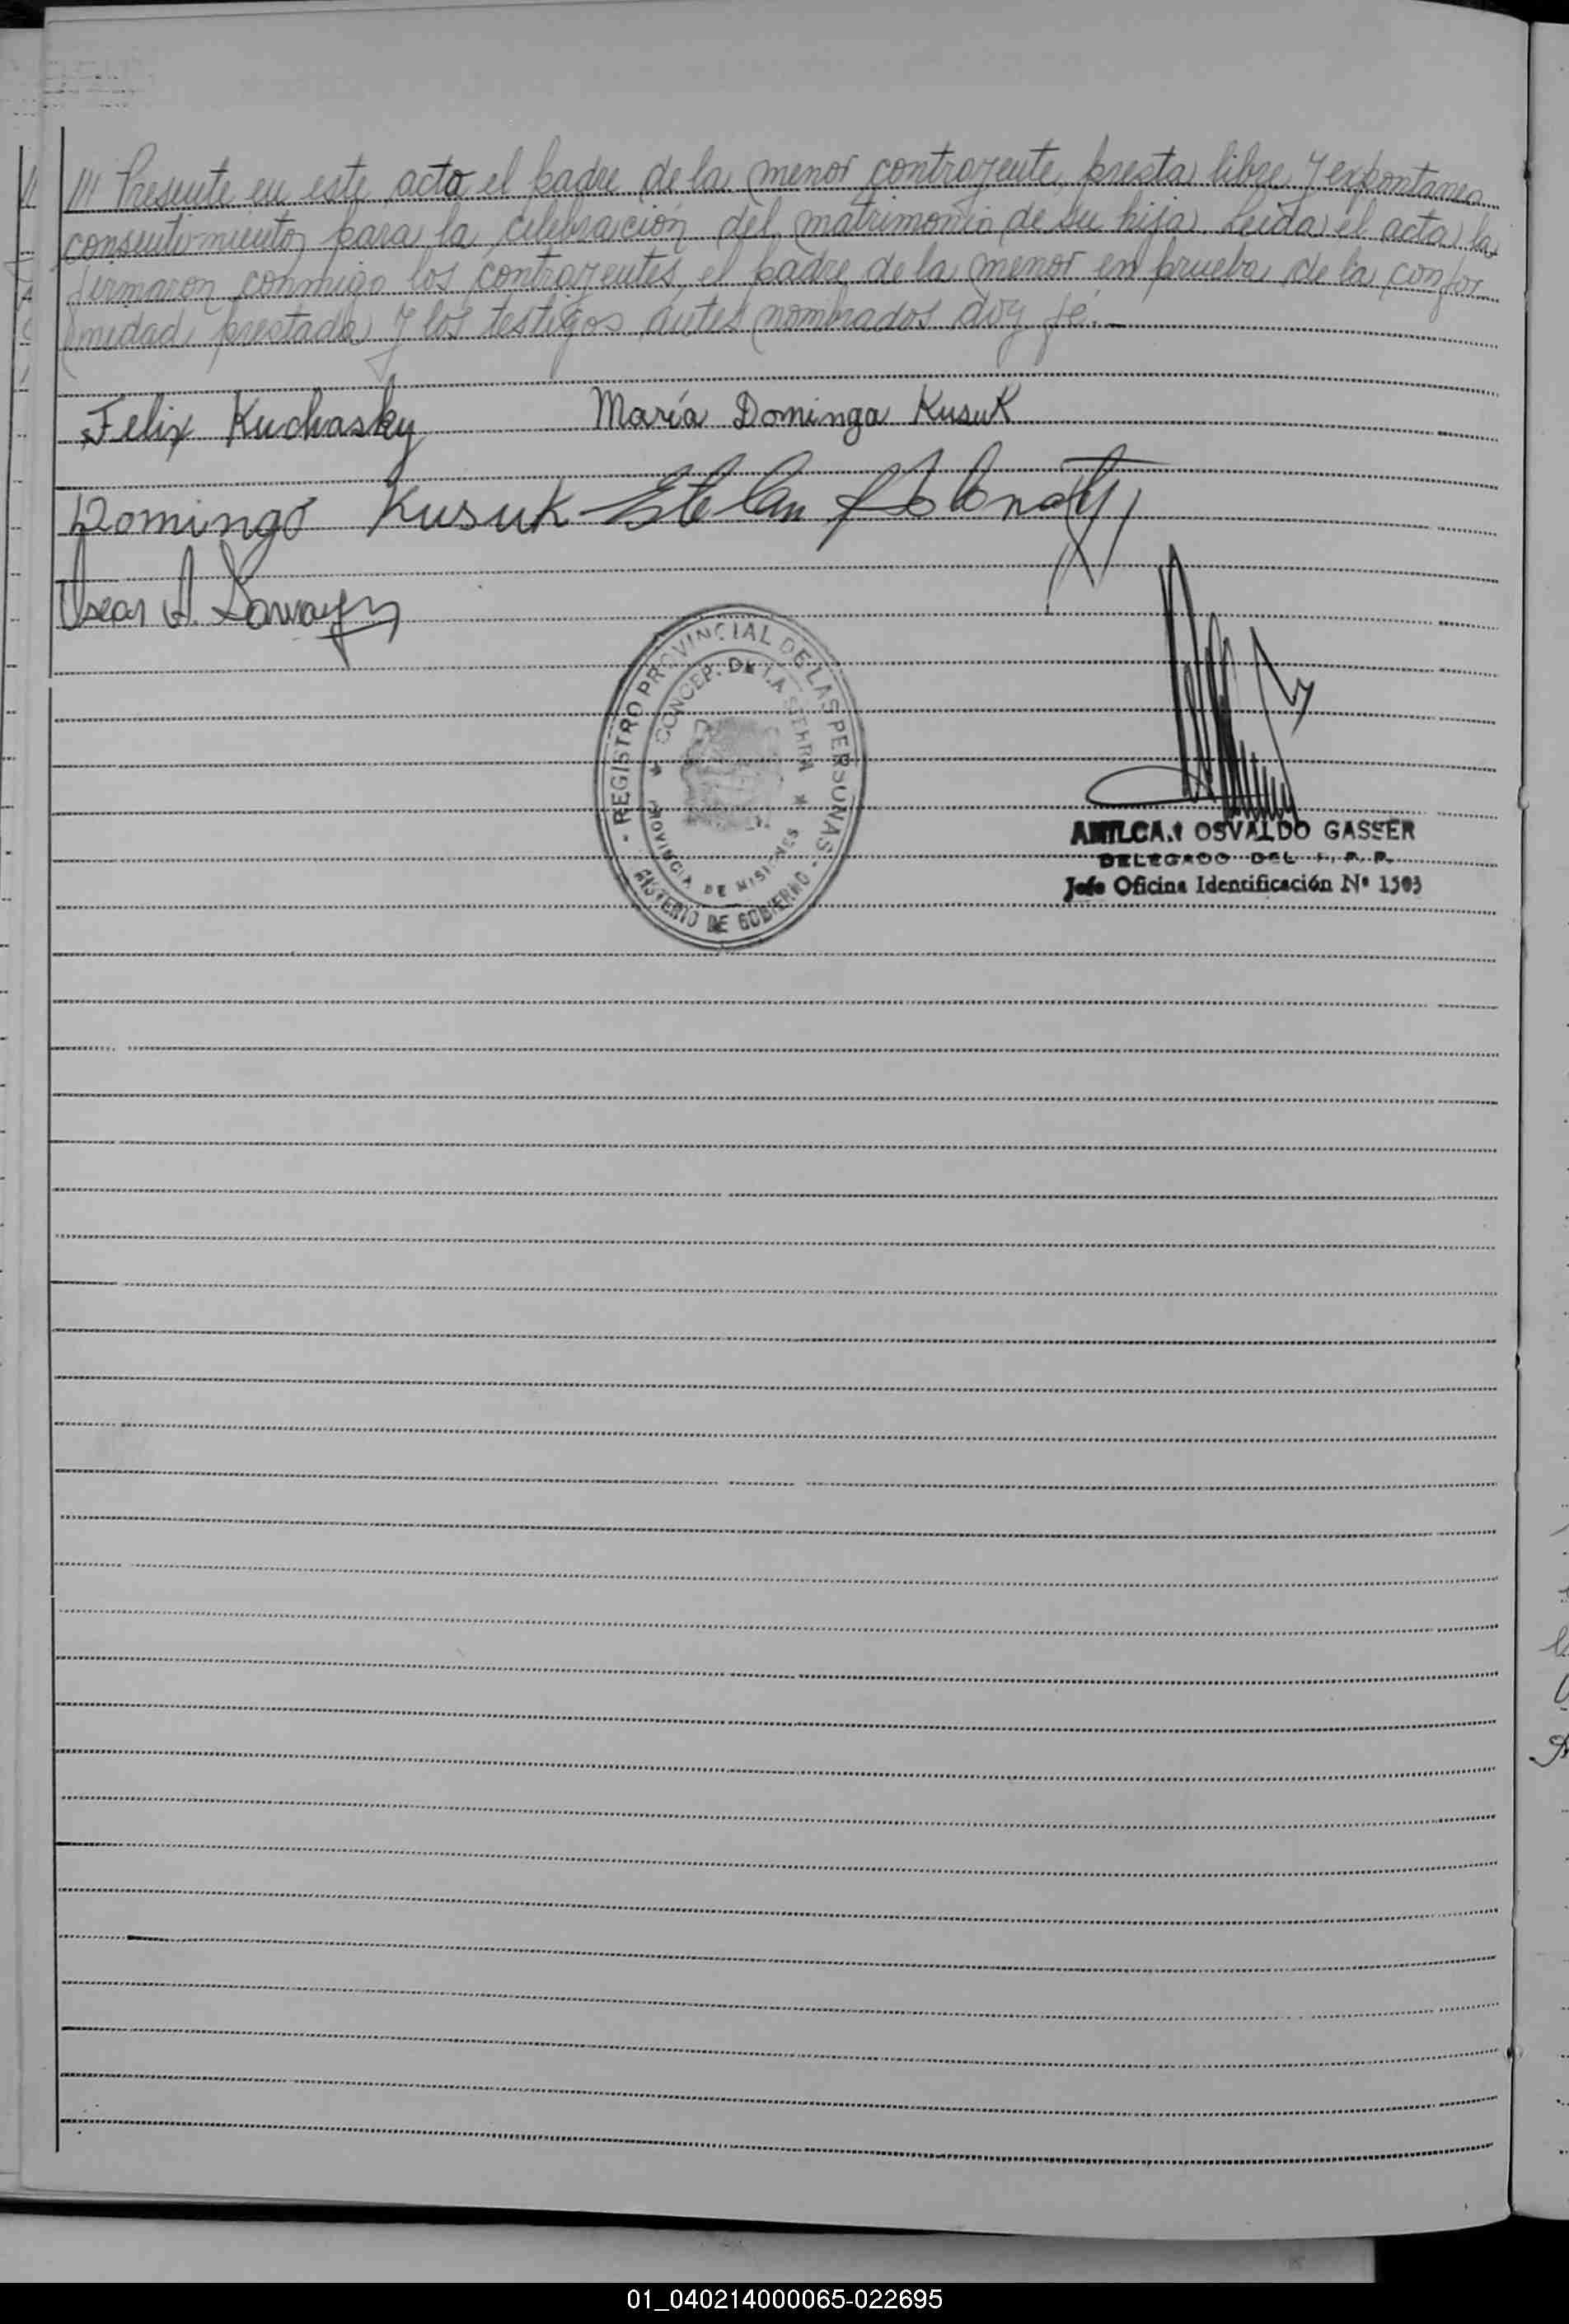 /// Presente en este acto el padre de la menor contrayente, presta libre y expontaneo
consentimiento para la celebración del matrimonio de su hija. Leida el acta la
firmaron conmigo los contrayentes, el padre de la menor en prueba de la confor
midad prestada y los testigos antes nombrados doy fé.-
Felix Kuchasky María Dominga Kusuk
Domingo Kusuk Esteban
Oscar A.
- REGISTRO PROVINCIAL DE LAS PERSONAS -
CONCEP. DE LA SIERRA
PROVINCIA DE MISIONES
NISTERIO DE GOBIERNO
AMILCAR OSVALDO GASSER
DELEGADO DEL R. P. P.
Jefe Oficina Identificación Nº 1503
01_040214000065-022695